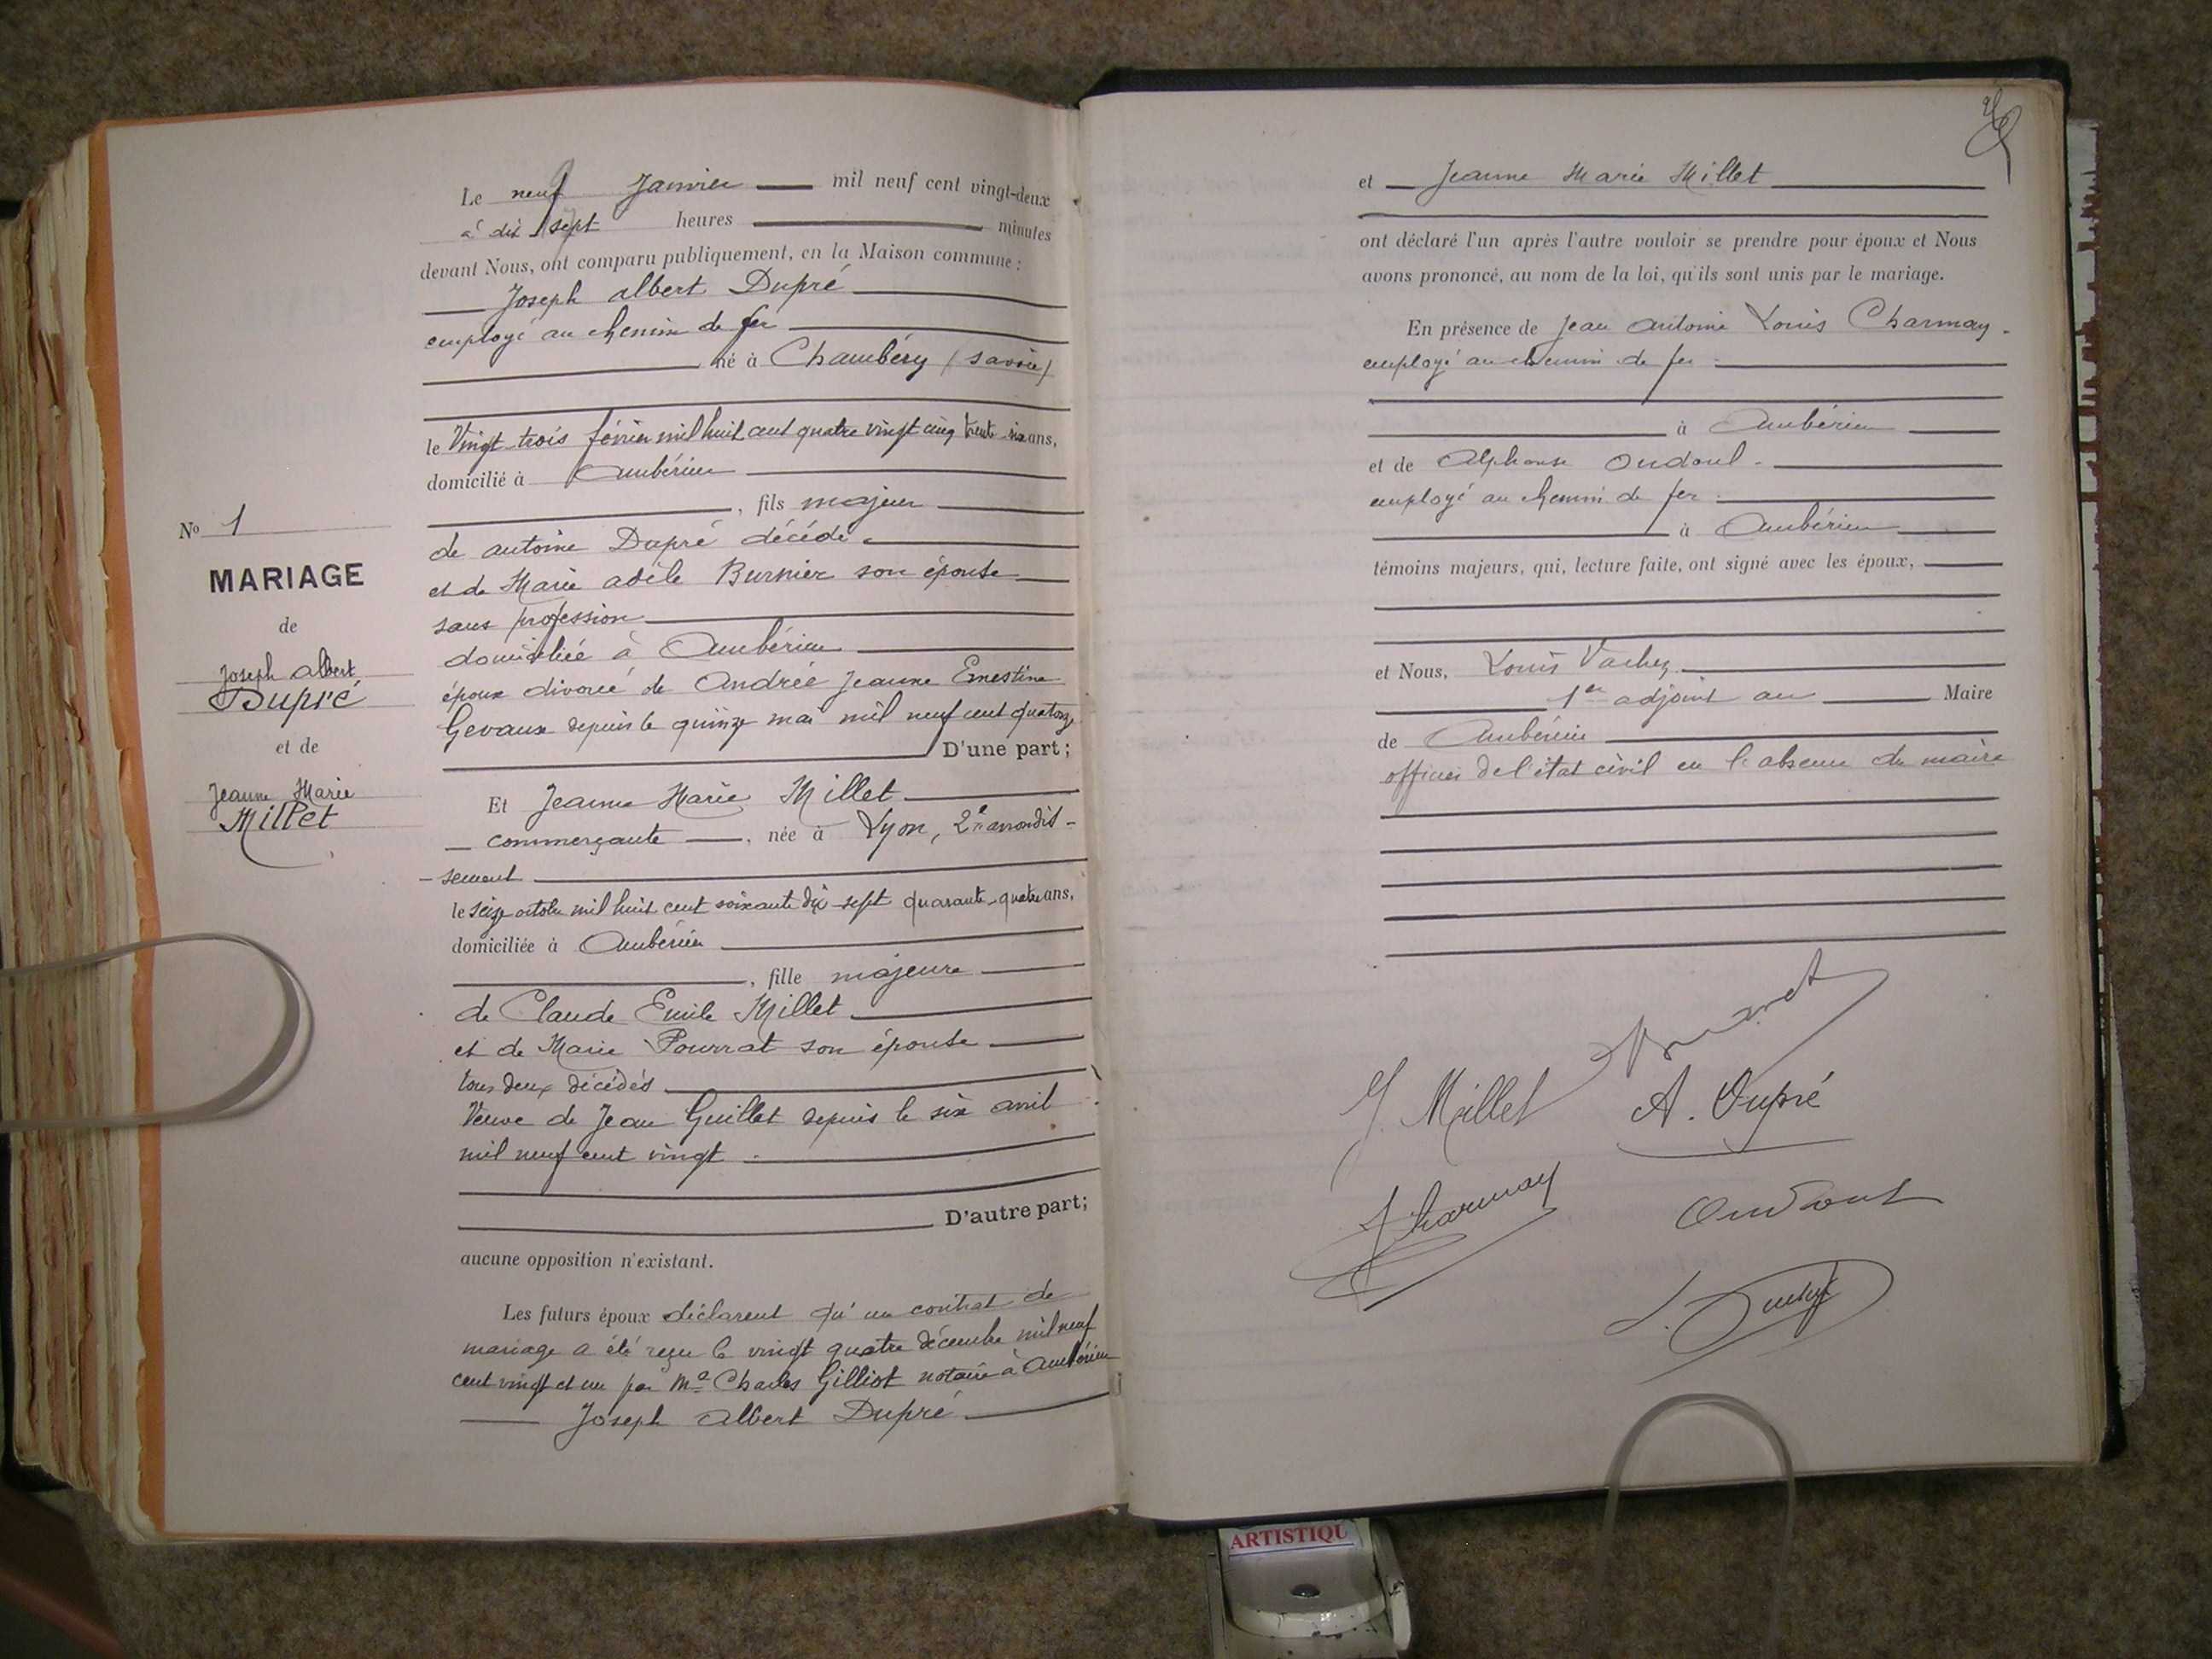 Le neuf Janvier mil neuf cent vingt-deux
à dix sept heures minutes
devant Nous, ont comparu publiquement, en la Maison commune :
Joseph albert Dupré
employé au chemin de fer
né à Chambéry (savoie)
le Vingt-trois février mil huit cent quatre vingt cinq trente-six ans,
domicilié à Ambérieu
, fils majeur
de antoine Dupré décédé
et de Marie adèle Burnier son épouse
sans profession
domiciliée à Ambérieu
époux divorcé de Andrée Jeanne Ernestine
Gevaux depuis le quinze mai mil neuf cent quatorze
D'une part ;
No 1
MARIAGE
de
Joseph albert
Dupré
et de
Jeanne Marie
Millet
Et Jeanne Marie Millet
commerçante , née à Lyon, 2e arrondis-
-sement
le seize octobre mil huit cent soixante dix-sept quarante-quatre ans,
domiciliée à Ambérieu
, fille majeure
de Claude Emile Millet
et de Marie Pourrat son épouse
tous deux décédés
Veuve de Jean Guillet depuis le six avril
mil neuf cent vingt
D'autre part;
aucune opposition n'existant.
Les futurs époux déclarent qu'un contrat de
mariage a été reçu le vingt quatre décembre mil neuf
cent vingt et un par Me Charles Gilliot notaire à Ambérieu
Joseph Albert Dupré
et Jeanne Marie Millet
ont déclaré l'un après l'autre vouloir se prendre pour époux et Nous
avons prononcé, au nom de la loi, qu'ils sont unis par le mariage.
En présence de Jean Antoine Louis Charmay
employé au chemin de fer
à Ambérieu
et de Alphonse Oudoul
employé au chemin de fer
à Ambérieu
témoins majeurs, qui, lecture faite, ont signé avec les époux,
et Nous, Louis Vachez
1er adjoint au Maire
de Ambérieu
officier de l'état civil en l'absence du maire
J. Millet A. Dupré
Charmay Oudoul
ARTISTIQU